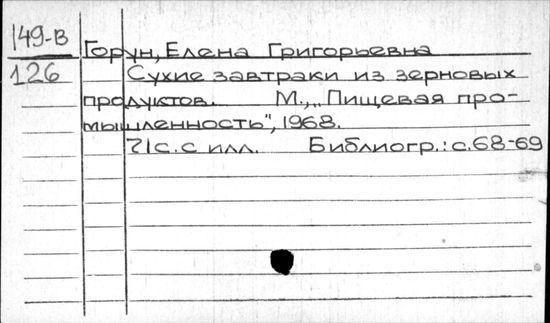 149-В
126
Горун, Елена Григорьевна
Сухие завтраки из зерновых
продуктов. М., „Пищевая про-
мышленность", 1968.
71с. с илл. Библиогр.: с. 68-69